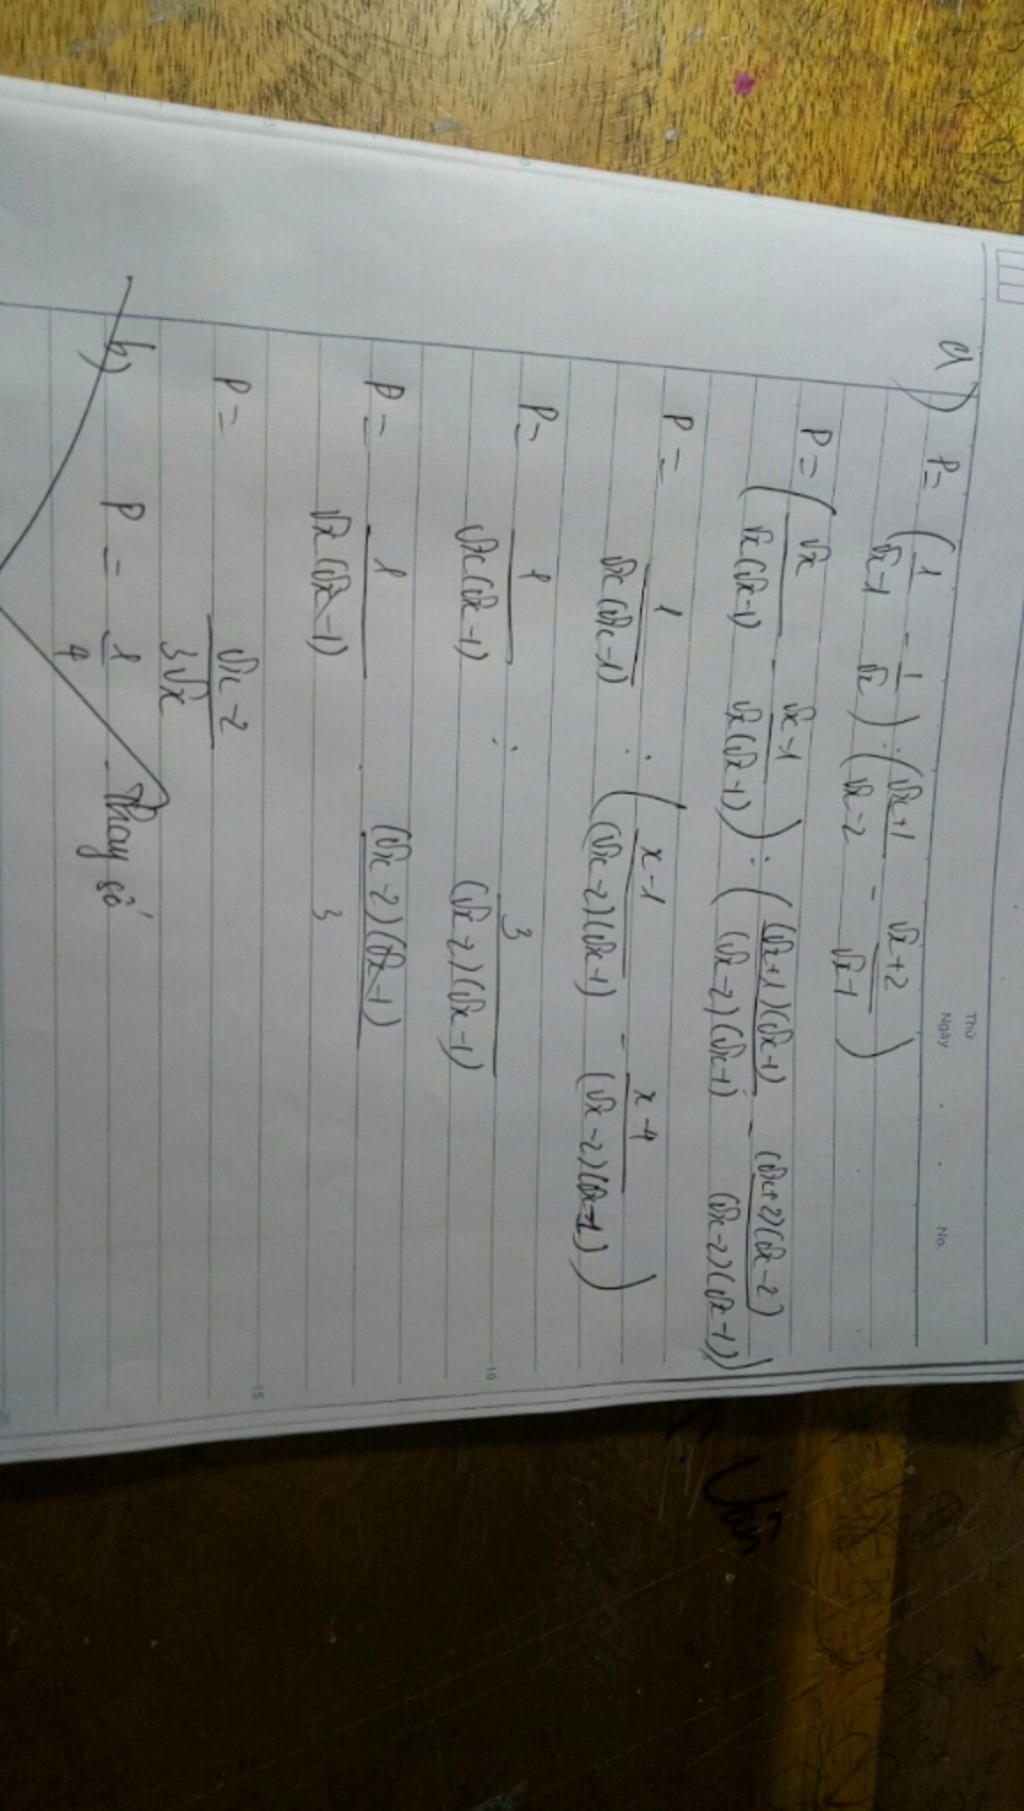 Thứ
Ngày . . No.
a) P = (1/(√x-1) - 1/√x) : ((√x+1)/(√x-2) - (√x+2)/(√x-1))
P = (√x/(√x(√x-1)) - (√x-1)/(√x(√x-1))) : ((√x+1)(√x-1)/((√x-2)(√x-1)) - (√x+2)(√x-2)/((√x-2)(√x-1)))
P = 1/(√x(√x-1)) : ((x-1)/((√x-2)(√x-1)) - (x-4)/((√x-2)(√x-1)))
P = 1/(√x(√x-1)) : 3/((√x-2)(√x-1))
P = 1/(√x(√x-1)) . (√x-2)(√x-1)/3
P = (√x-2)/(3√x)
b) P = 1/4 Thay số
5
10
15
20
Văn